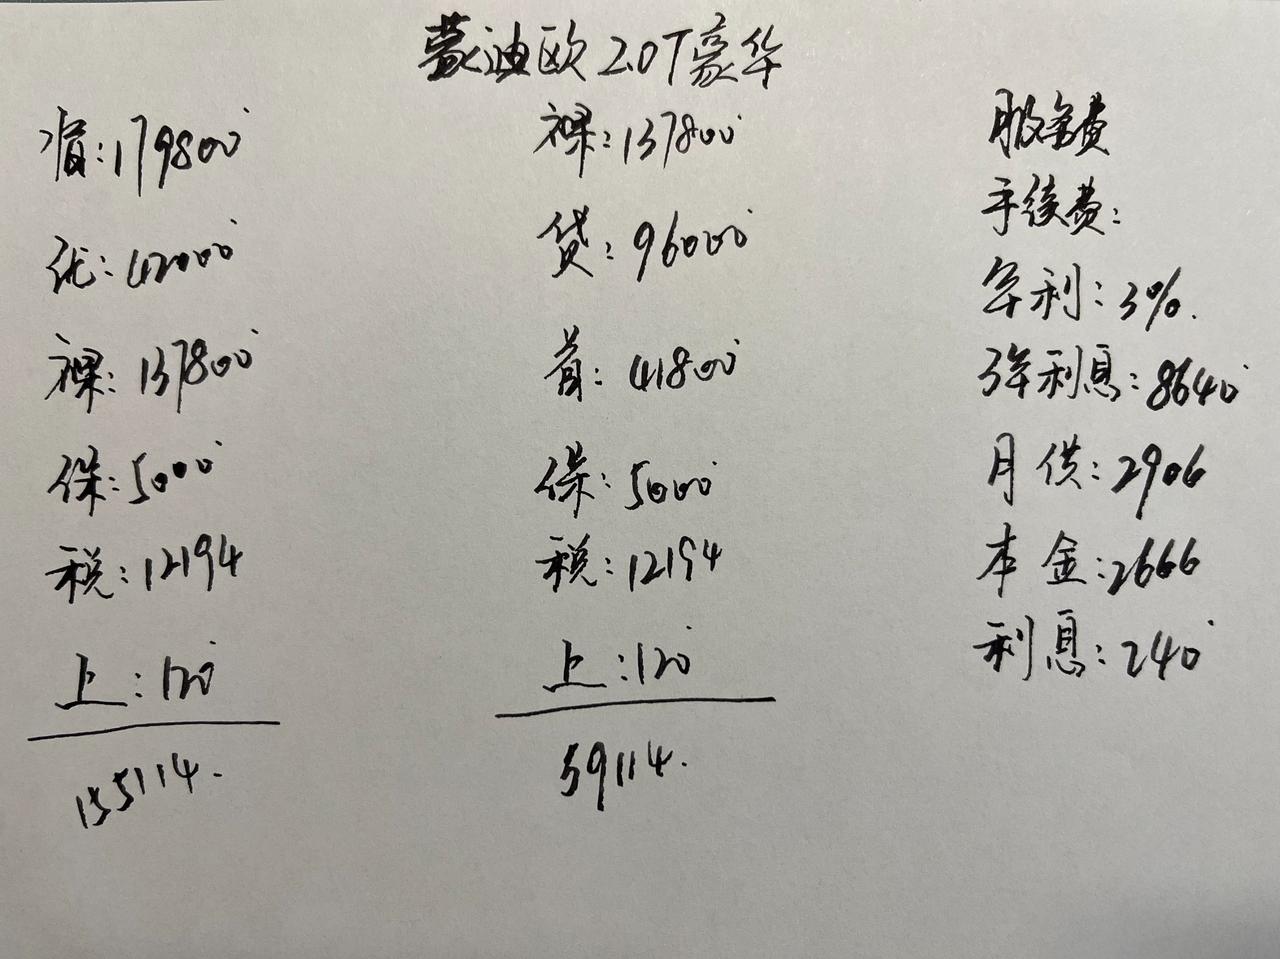 蒙迪欧 2.0T豪华
指:179800
优:42000
裸:137800
保:5000
税:12194
上:120
155114.
裸:137800
贷:96000
首:41800
保:5000
税:12194
上:120
59114.
服务费
手续费:
年利:3%.
3年利息:8640
月供:2906
本金:2666
利息:240